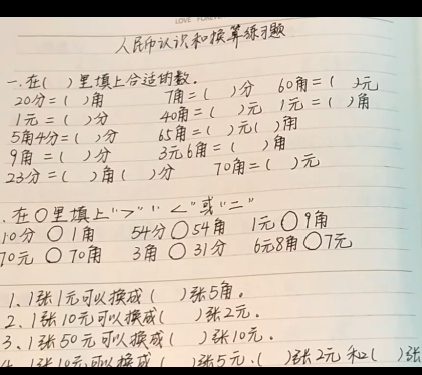 LOVE
人民币认识和换算练习题
一.在( )里填上合适的数.
20分=( )角 7角=( )分 60角=( )元
1元=( )分 40角=( )元 1元=( )角
5角4分=( )分 65角=( )元( )角
9角=( )分 3元6角=( )角
23分=( )角( )分 70角=( )元
.在○里填上">""<"或"="
10分○1角 54分○54角 1元○9角
70元○70角 3角○31分 6元8角○7元
1、1张1元可以换成( )张5角。
2、1张10元可以换成( )张2元。
3、1张50元可以换成( )张10元。
1张10元可以换成( )张5元、( )张2元和( )张